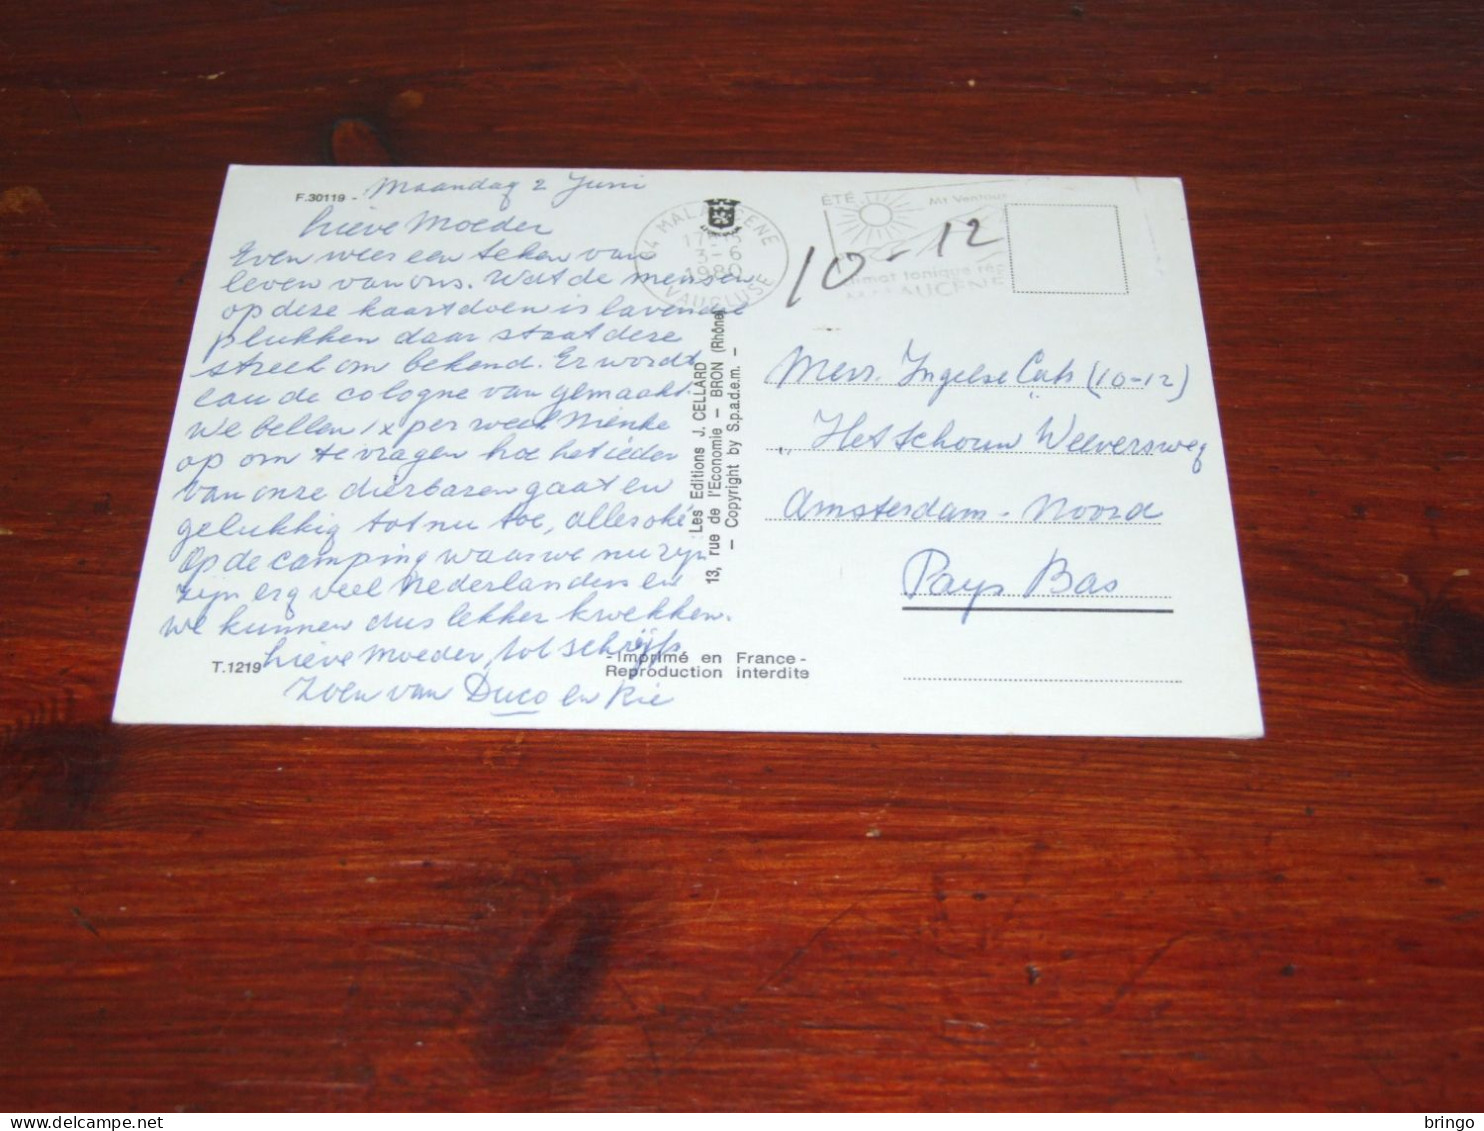 F.30119 - Maandag 2 Juni
Lieve Moeder
Even weer een teken van
leven van ons. Wat de mensen
op deze kaart doen is lavendel
plukken daar staat deze
streek om bekend. Er wordt
eau de cologne van gemaakt.
We bellen 1x per week Nienke
op om te vragen hoe het ieder
van onze dierbaren gaat en
gelukkig tot nu toe, alles oké
Op de camping waar we nu zijn
zijn erg veel Nederlanders en
we kunnen dus lekker kwekken.
T.1219 Lieve Moeder, tot schrijfs
Zoen van Duco en Rie
Les Editions J. CELLARD
13, rue de l'Economie - BRON (Rhône)
- Copyright by S.p.a.d.e.m. -
- Imprimé en France -
Reproduction interdite
84 MALAUCENE
3-6
1980
VAUCLUSE
ÉTÉ
Mt Ventoux
climat tonique
MALAUCENE
10-12
Mevr. Ingelse (10-12)
Het Schouw Weeversweg
Amsterdam-Noord
Pays Bas
bringo